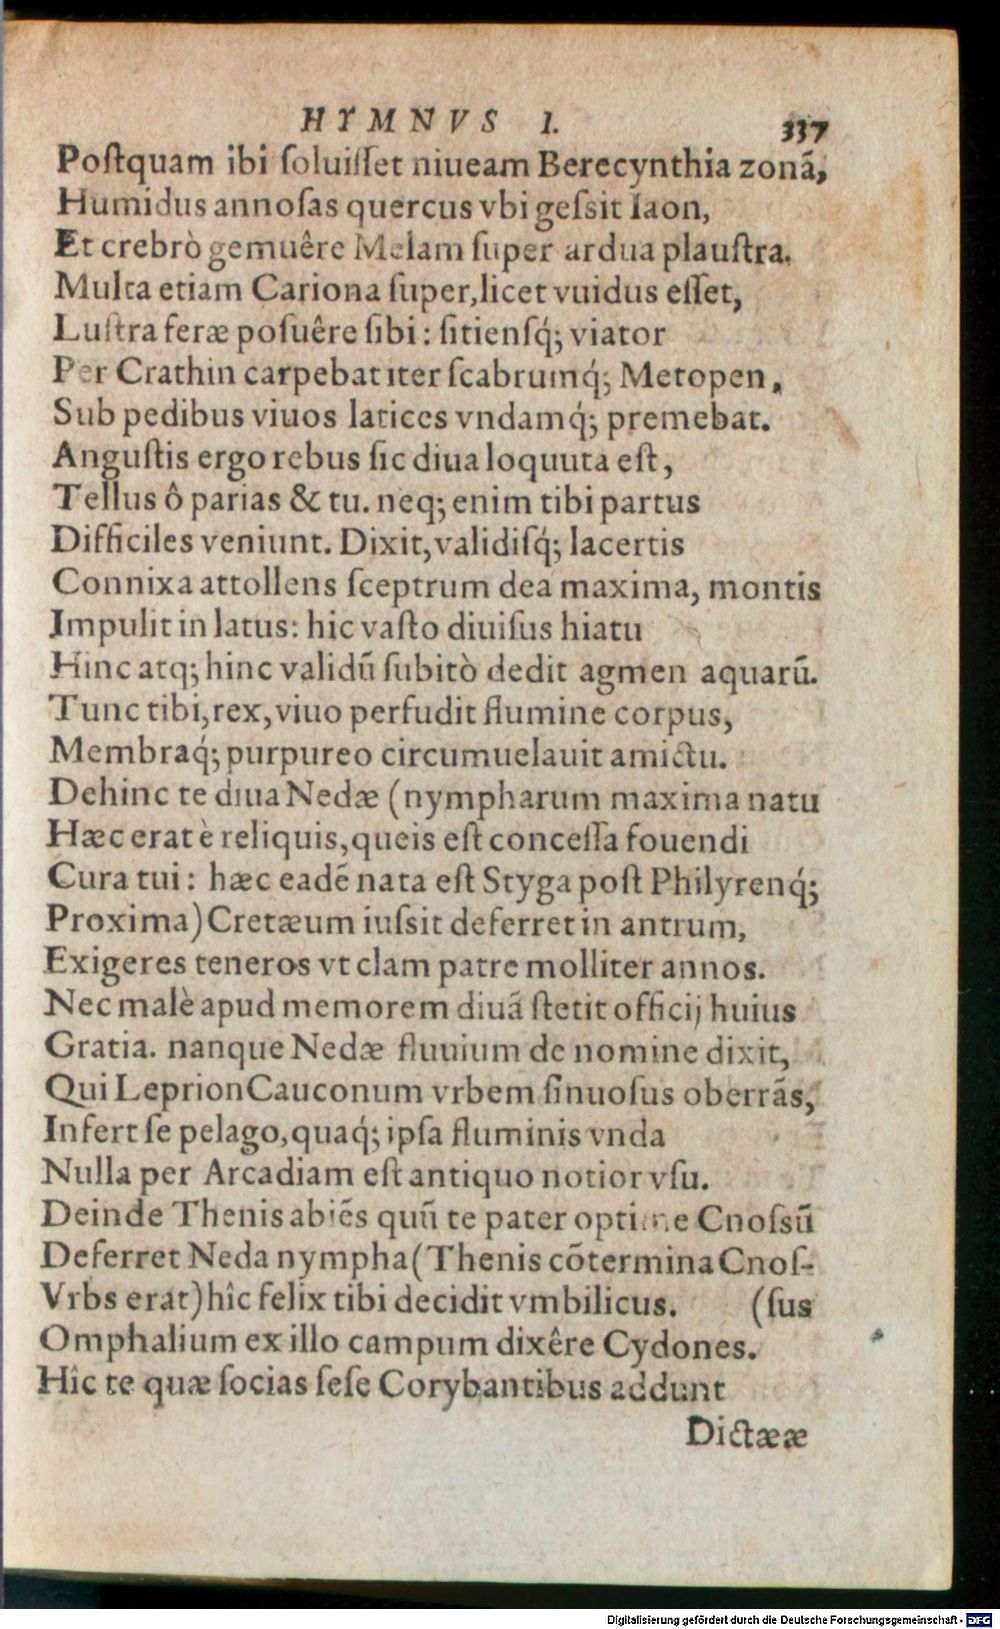 HYMNVS I. 337
Poſtquam ibi ſoluiſſet niueam Berecynthia zonã,
Humidus annoſas quercus vbi geſsit Iaon,
Et crebrò gemuêre Melam ſuper ardua plauſtra.
Multa etiam Cariona ſuper, licet vuidus eſſet,
Luſtra feræ poſuêre ſibi: ſitienſq́; viator
Per Crathin carpebat iter ſcabrumq́; Metopen,
Sub pedibus viuos latices vndamq́; premebat.
Anguſtis ergo rebus ſic diua loquuta eſt,
Tellus ô parias & tu. neq; enim tibi partus
Difficiles veniunt. Dixit, validiſq́; lacertis
Connixa attollens ſceptrum dea maxima, montis
Impulit in latus: hic vaſto diuiſus hiatu
Hinc atq; hinc validũ ſubitò dedit agmen aquarũ.
Tunc tibi, rex, viuo perfudit flumine corpus,
Membraq́; purpureo circumuelauit amictu.
Dehinc te diua Nedæ (nympharum maxima natu
Hæc erat è reliquis, queis eſt conceſſa fouendi
Cura tui: hæc eadẽ nata eſt Styga poſt Philyrenq́;
Proxima) Cretæum iuſsit deferret in antrum,
Exigeres teneros vt clam patre molliter annos.
Nec malè apud memorem diuã ſtetit officij huius
Gratia. nanque Nedæ fluuium de nomine dixit,
Qui Leprion Cauconum vrbem ſinuoſus oberrãs,
Infert ſe pelago, quaq́; ipſa fluminis vnda
Nulla per Arcadiam eſt antiquo notior vſu.
Deinde Thenis abiẽs quũ te pater optime Cnoſsũ
Deferret Neda nympha (Thenis cõtermina Cnoſ-
Vrbs erat) hîc felix tibi decidit vmbilicus. (ſus
Omphalium ex illo campum dixêre Cydones.
Hîc te quæ ſocias ſeſe Corybantibus addunt
Dictææ
Digitalisierung gefördert durch die Deutsche Forschungsgemeinschaft - DFG